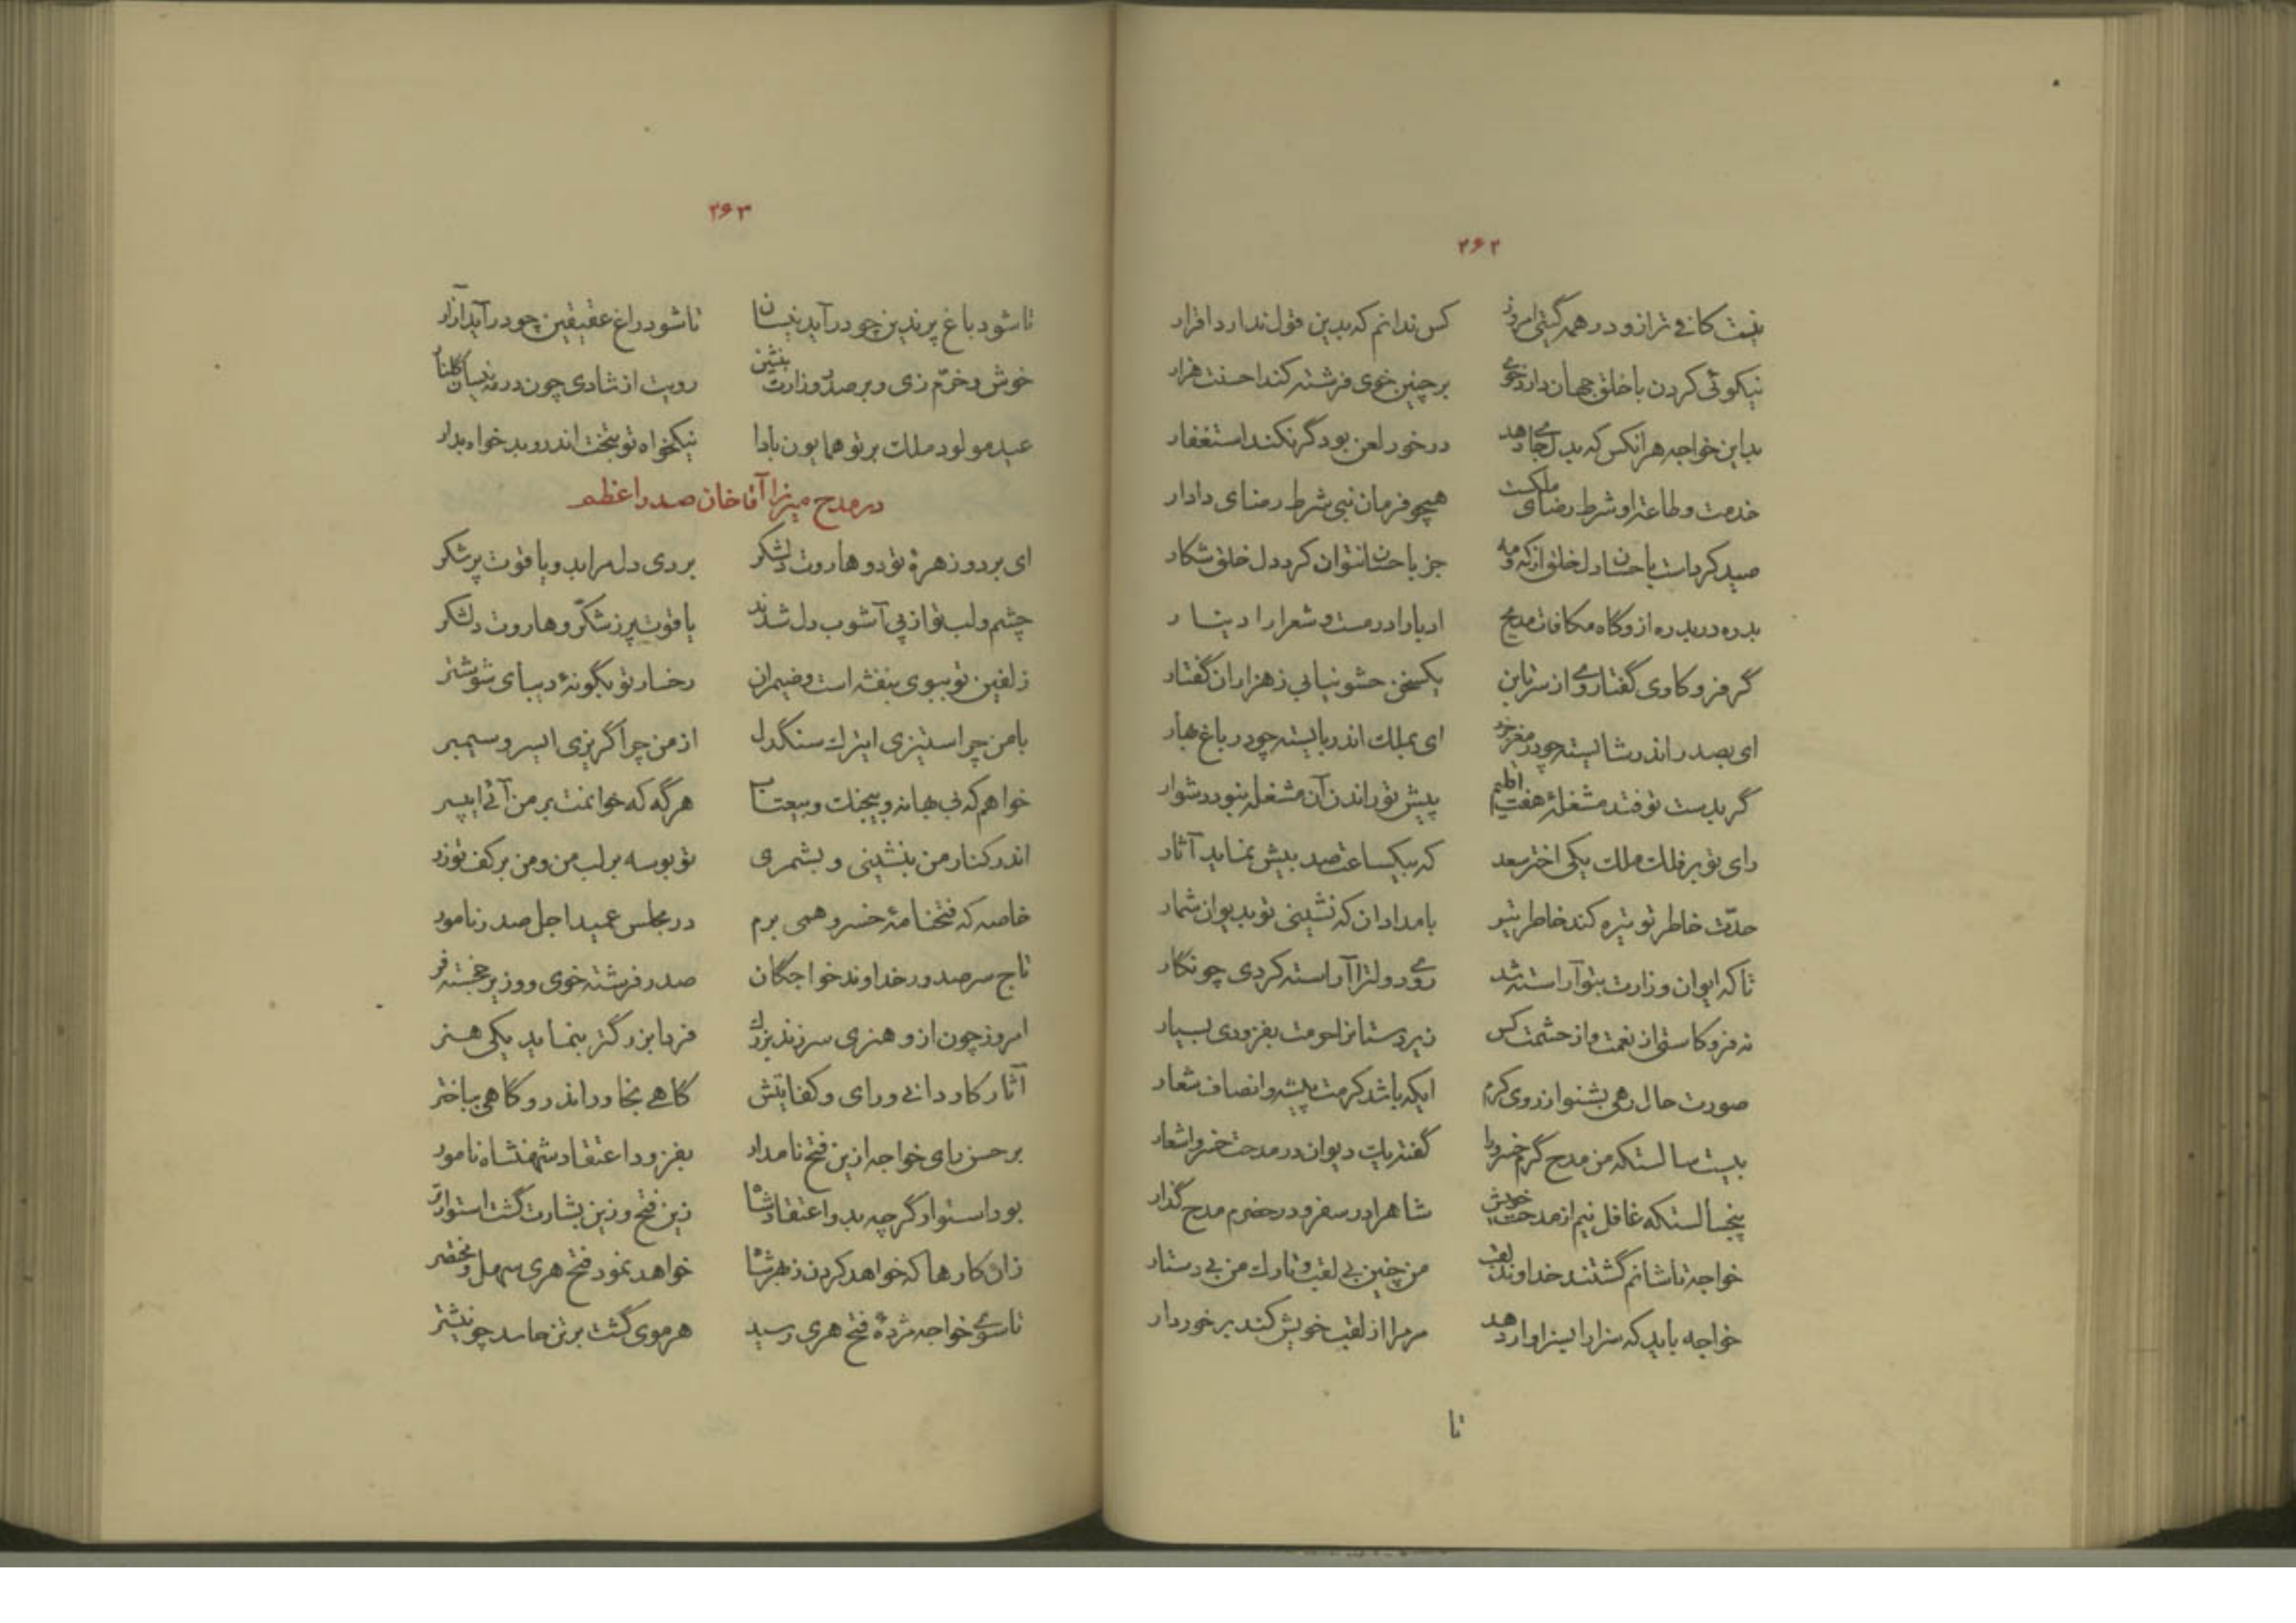 ۲۶۲
نیست کافی تر ازو در همه گیتی امروز کس ندانم که بدین قول ندارد اقرار
نیکوئی کردن با خلق جهان دارد خوی بر چنین خوی فرشته کند احسنت هزار
بد این خواجه هر آنکس که بدل جای دهد در خور لعن بود گر نکند استغفار
خدمت و طاعت او شرط رضای ملکست همچو فرمان نبی شرط رضای دادار
صید کرد است باحسان دل خلق از که و مه جز باحسان نتوان کرد دل خلق شکار
بدره در بدره ازو گاه مکافات مدیح ادبا را درمست و شعرا را دینار
گر فرو کاوی گفتار وی از سر تا بن یکسخن حشو نیابی ز هزاران گفتار
ای بصدر اندر شایسته چو در مغز خرد ای بملک اندر بایسته چو در باغ بهار
گر بدست تو فتد مشغلهٔ هفت اقلیم پیش تو راندن آن مشغله نبود دشوار
رای تو بر فلک ملک یکی اختر سعد که بیکساعت صد بیش نماید آثار
حدّت خاطر تو تیره کند خاطر تیر بامدادان که نشینی تو بدیوان شمار
تا که ایوان وزارت بتو آراسته شد روی دولترا آراسته کردی چو نگار
نه فرو کاستی از نعمت و از حشمت کس زیردستانرا حرمت بفزودی بسیار
صورت حال رهی بشنو از روی کرم ایکه باشد کرمت پیشه و انصاف شعار
بیست سالستکه من مدح گرم خسرو را گفته یک دیوان در مدحت خسرو اشعار
پنجسالستکه غافل نیم از مدحت خویش شاهرا در سفر و در حضرم مدح گذار
خواجه تاشانم گشتند خداوند لقب من چنین بی لقب و تارک من بی دستار
خواجه باید که سزا را بسزاوار دهد مر مرا از لقب خویش کند برخوردار
تا
۲۶۳
تا شود باغ پرندین چو در آید نیسان تا شود راغ عقیقین چو در آید آزار
خوش و خرّم زی و بر صدر وزارت بنشین رویت از شادی چون در مه نیسان گلنار
عید مولود ملک بر تو همایون بادا نیکخواه تو بتخت اندر و بد خواه بدار
در مدح میرزا آقاخان صدر اعظم
ای بر دو زهرهٔ تو دو هاروت دلشکر بردی دل مرا بدو یاقوت پر شکر
چشم و لب تو از پی آشوب دل شدند یاقوت پر ز شکّر و هاروت دلشکر
زلفین تو ببوی بنفشه است و ضیمران رخسار تو بگونهٔ دیبای شوشتر
با من چرا ستیزی ای ترک سنگدل از من چرا گریزی ای سرو سیمبر
خواهم که بی بهانه و بیجنگ و بیعتاب هرگه که خوانمت بر من آئی ای پسر
اندر کنار من بنشینی و بشمری تو بوسه بر لب من و من بر کف تو زر
خاصه که فتحنامهٔ خسرو همی برم در مجلس عمید اجل صدر نامور
تاج سر صدور خداوند خواجگان صدر فرشته خوی و وزیر خجسته فر
امروز چون ازو هنری سر زند بزرگ فردا بزرگتر بنماید یکی هنر
آثار کاردانی و رای و کفایتش گاهی بخاور اندر و گاهی بباختر
بر حسن رای خواجه ازین فتح نامدار بفزود اعتقاد شهنشاه نامور
بود استوار گرچه بدو اعتقاد شاه زین فتح و زین بشارت گشت استوارتر
زان کارها که خواهد کردن ز بهر شاه خواهد نمود فتح هری سهل و مختصر
تا سوی خواجه مژدهٔ فتح هری رسید هر موی گشت بر تن حاسد چو نیشتر